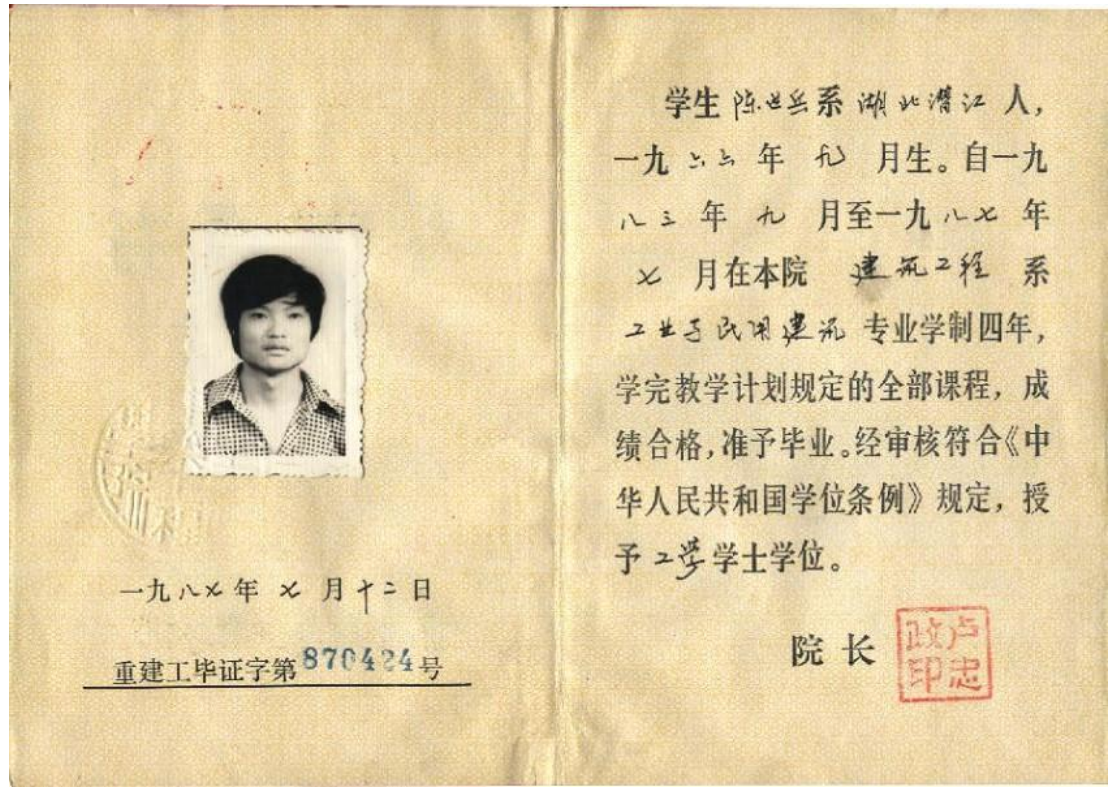 一九八七年七月十二日
重建工毕证字第870424号
学生陈世兵系湖北潜江人,
一九六六年九月生。自一九
八三年九月至一九八七年
七月在本院建筑工程系
工业与民用建筑专业学制四年,
学完教学计划规定的全部课程,成
绩合格,准予毕业。经审核符合《中
华人民共和国学位条例》规定,授
予工学学士学位。
院长
卢忠政印